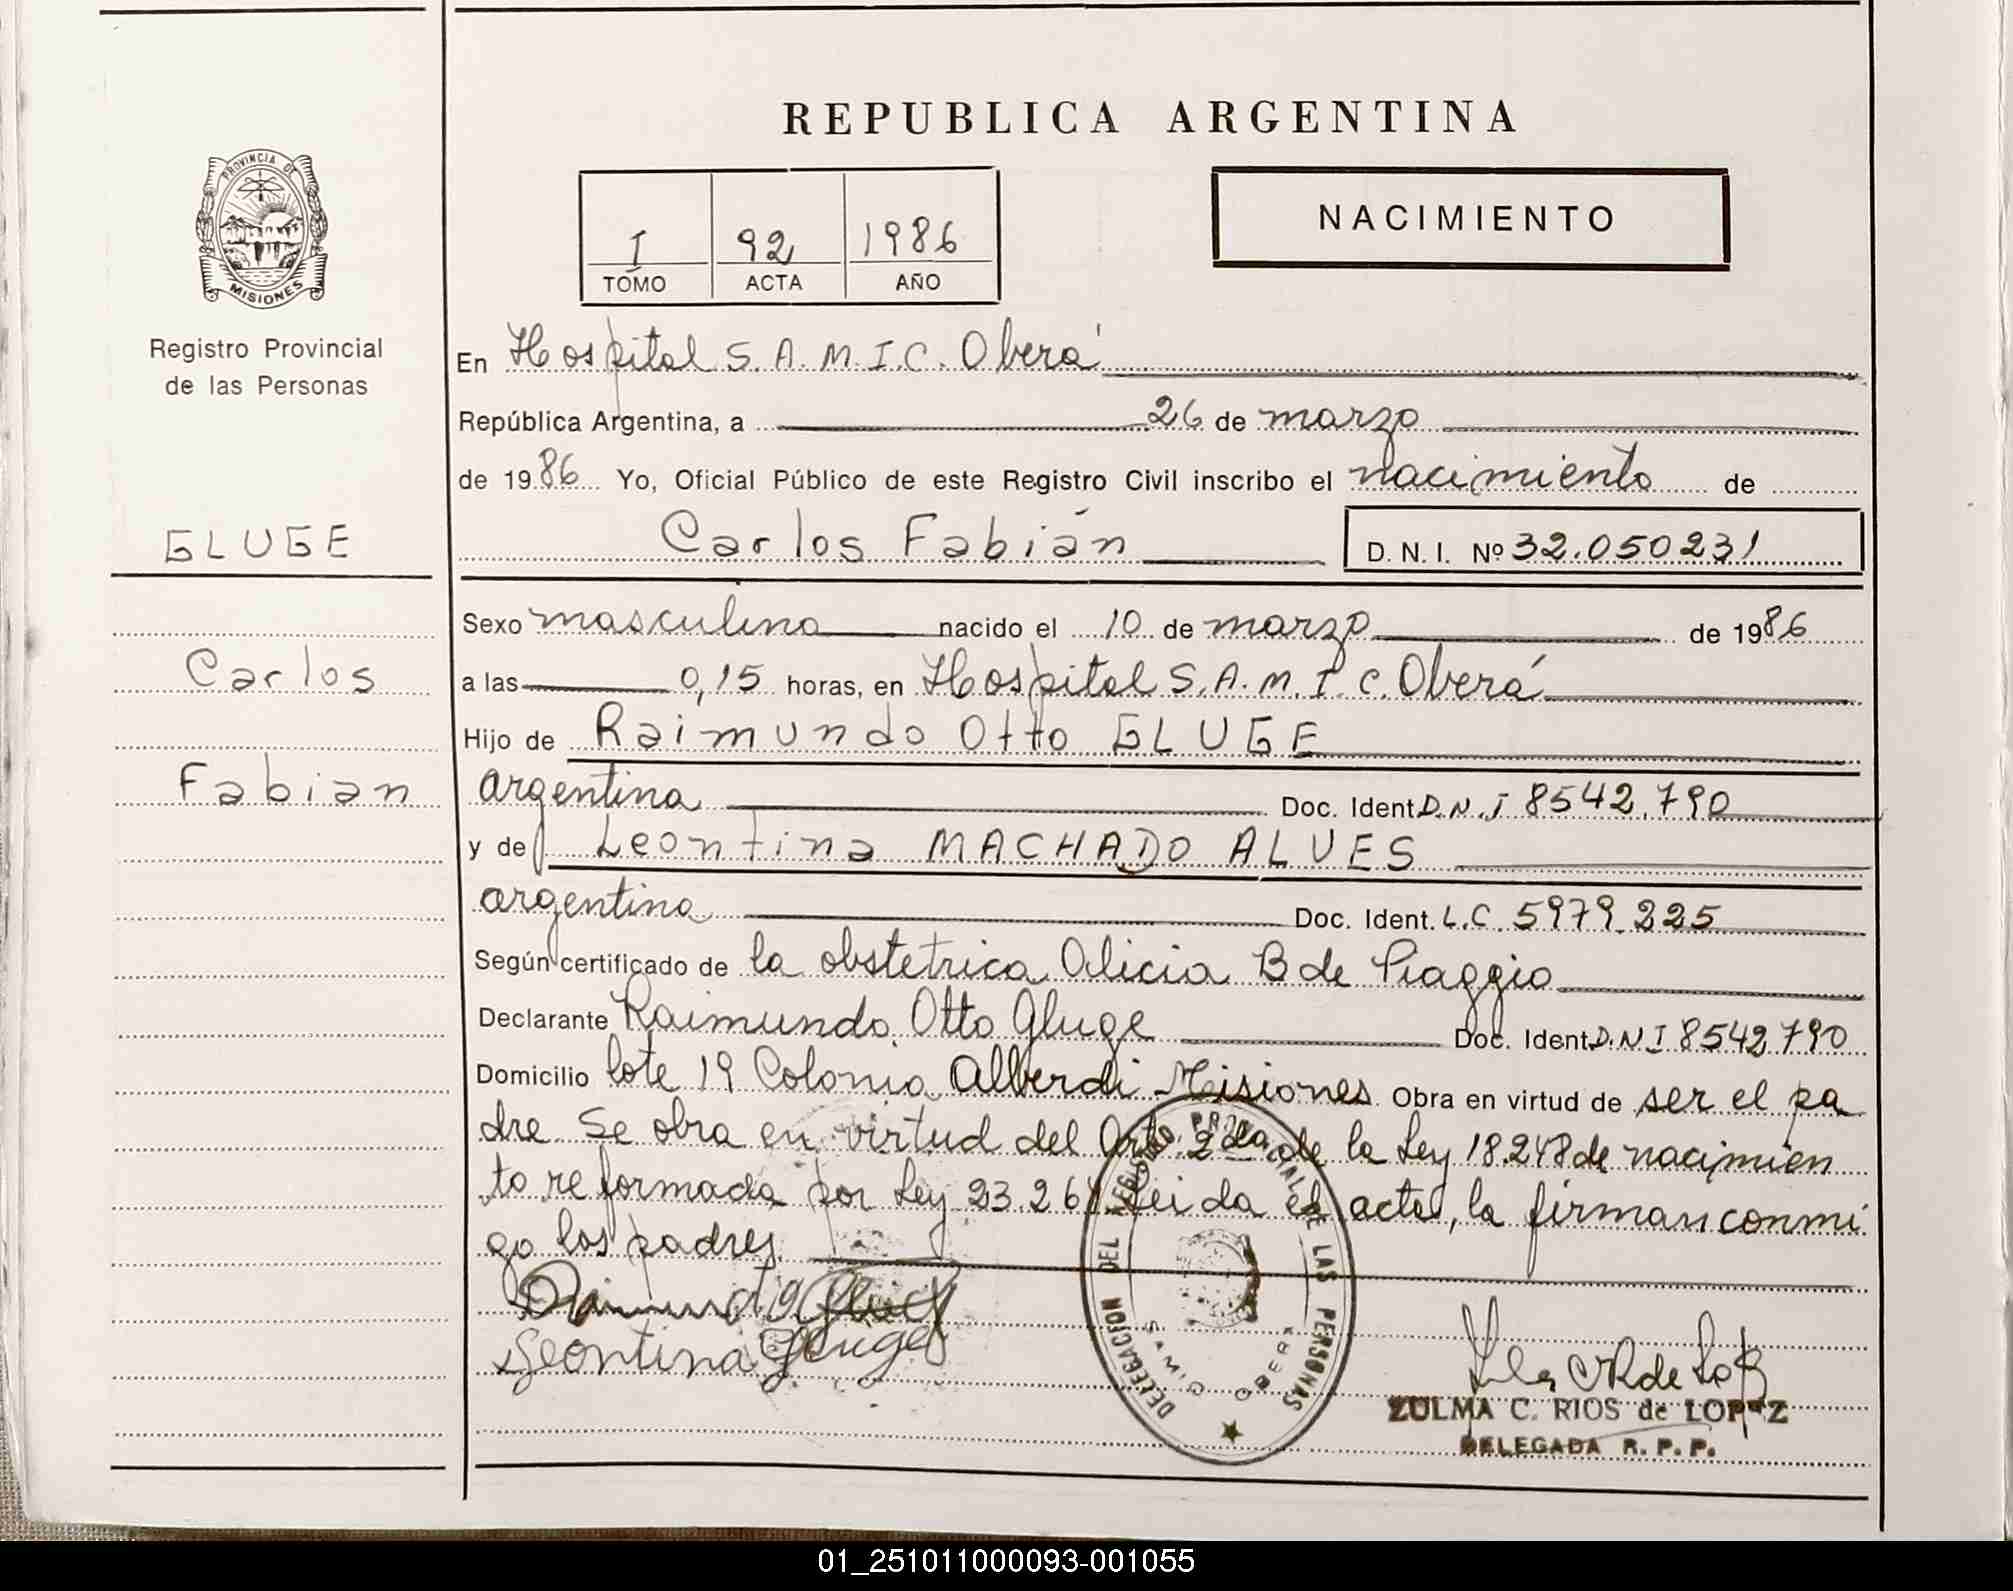 REPUBLICA ARGENTINA
PROVINCIA DE
MISIONES
Registro Provincial
de las Personas
I 92 1986
TOMO ACTA AÑO
NACIMIENTO
En Hospital S.A.M.I.C. Oberá
República Argentina, a 26 de marzo
de 1986 Yo, Oficial Público de este Registro Civil inscribo el nacimiento de
GLUGE
Carlos Fabián D.N.I. Nº 32.050231
Sexo masculino nacido el 10 de marzo de 1986
Carlos
a las 0,15 horas, en Hospital S.A.M.I.C. Oberá
Hijo de Raimundo Otto GLUGE
Fabián
argentina Doc. Ident. D.N.I 8542.790
y de Leontina MACHADO ALVES
argentina Doc. Ident. L.C. 5979.225
Según certificado de la obstetrica Alicia B de Piaggio
Declarante Raimundo Otto Gluge Doc. Ident. D.N.I 8542790
Domicilio lote 19 Colonia Alberdi Misiones Obra en virtud de ser el pa
dre Se obra en virtud del Art. 2do de la Ley 18.248 de nacimien
to reformada por Ley 23.264 Leida el acta, la firman conmi
go los padres.
Leontina Gluge
DELEGACION DEL REGISTRO PROVINCIAL DE LAS PERSONAS
SAMIC OBERA
ZULMA C. RIOS de LOPEZ
DELEGADA R.P.P.
01_251011000093-001055